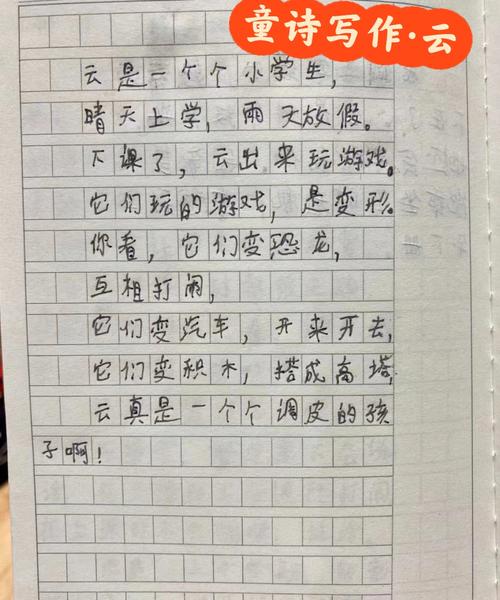 童诗写作·云
云是一个个小学生，
晴天上学，雨天放假。
下课了，云出来玩游戏。
它们玩的游戏，是变形。
你看，它们变恐龙，
互相打闹，
它们变汽车，开来开去，
它们变积木，搭成高塔，
云真是一个个调皮的孩
子啊！